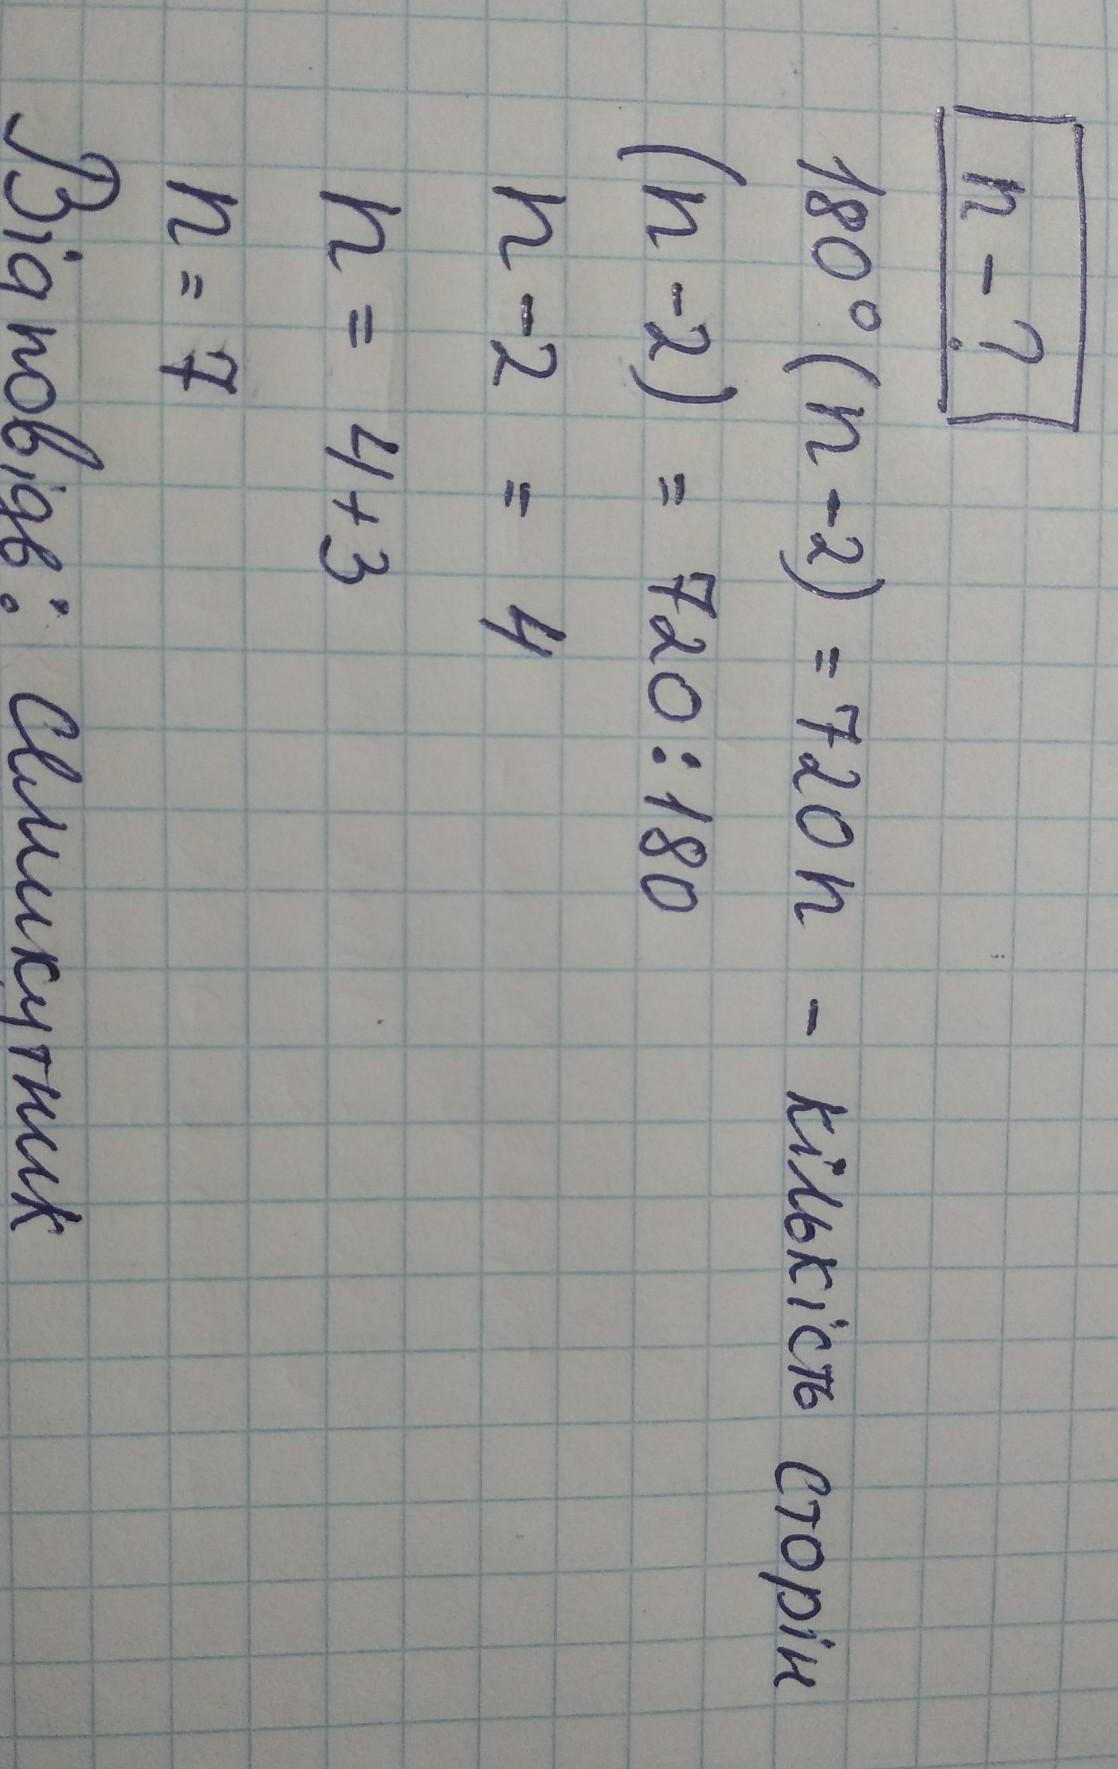 n - ?
180° (n - 2) = 720 n - кількість сторін
(n - 2) = 720 : 180
n - 2 = 4
n = 4 + 3
n = 7
Відповідь: Симкутник